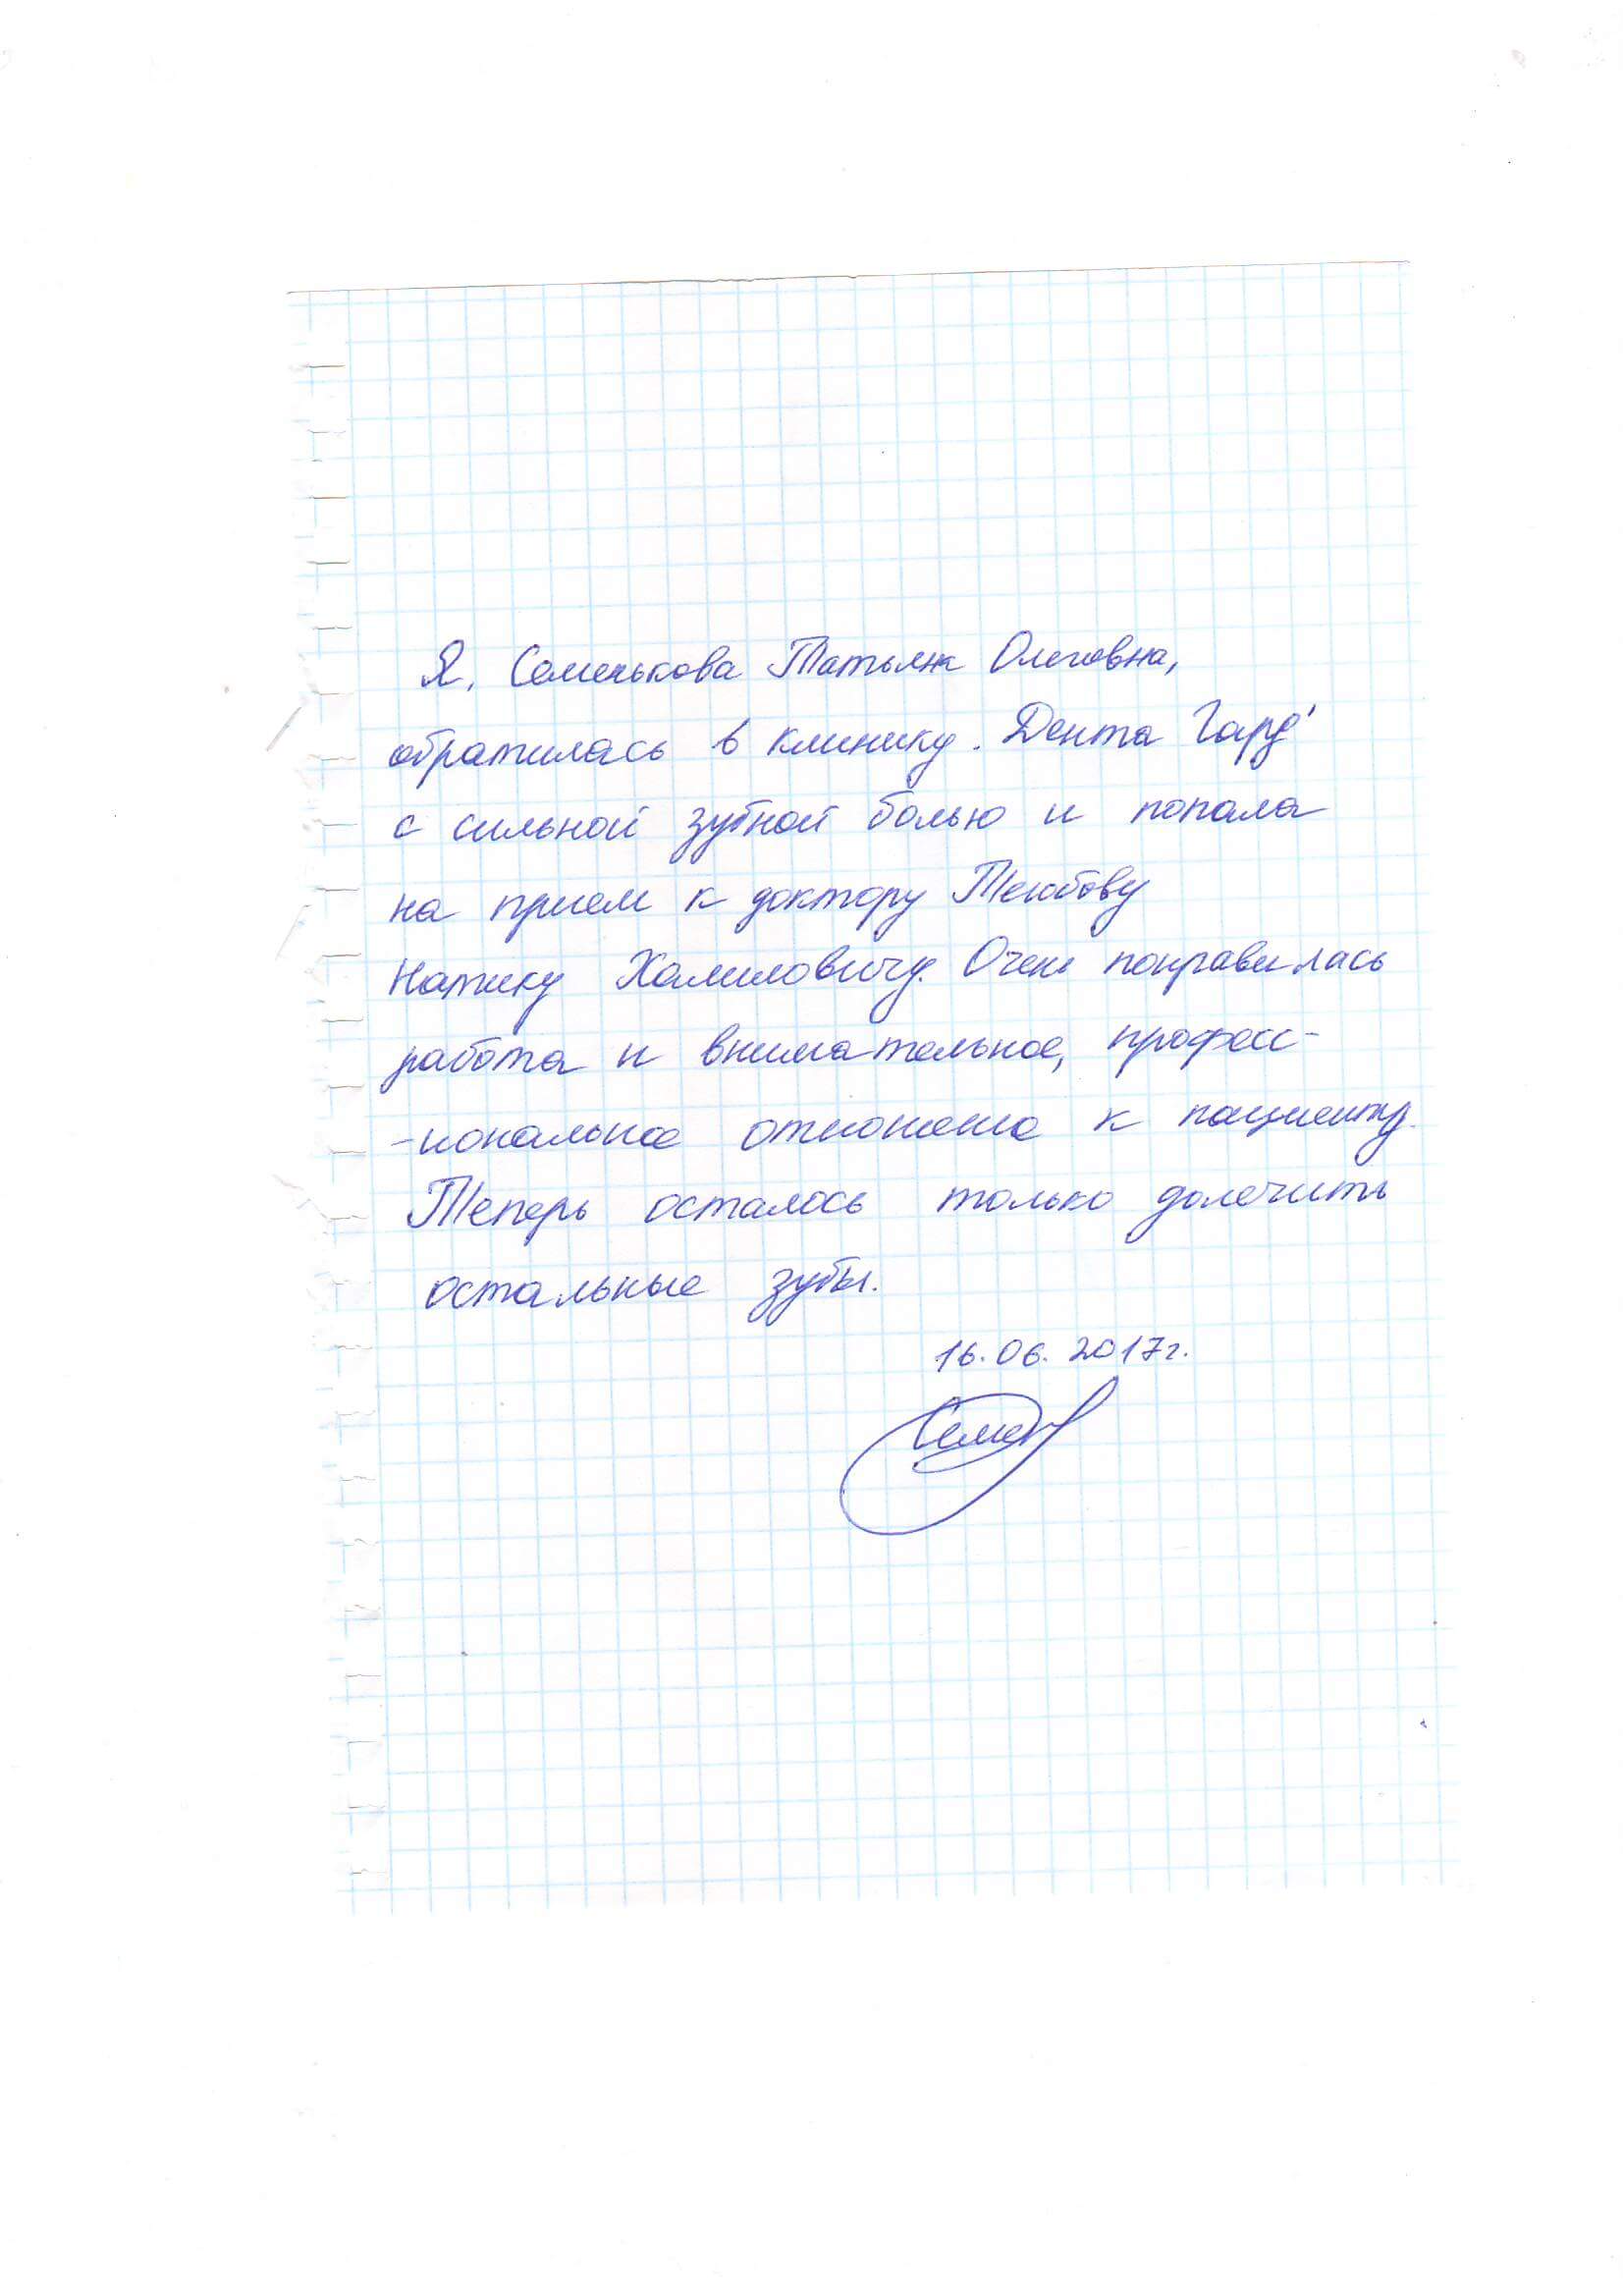 Я, Семенькова Татьяна Олеговна,
обратилась в клинику "Дента Гард"
с сильной зубной болью и попала
на прием к доктору Теюбову
Натику Халиловичу. Очень понравилась
работа и внимательное, професс-
-иональное отношение к пациенту.
Теперь осталось только долечить
остальные зубы.
16.06.2017г.
Семен